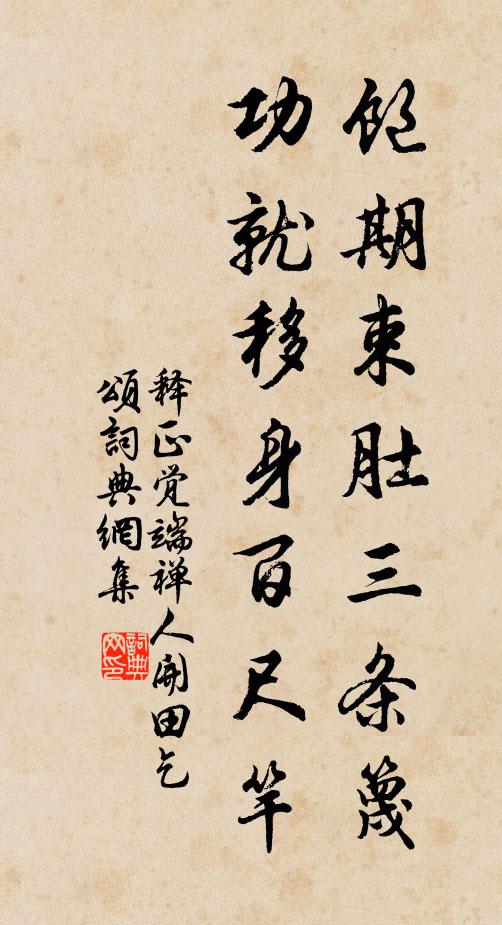 饱期束肚三条篾
功就移身百尺竿
释正觉端禅人开田乞
颂詞典網集
詞典网印